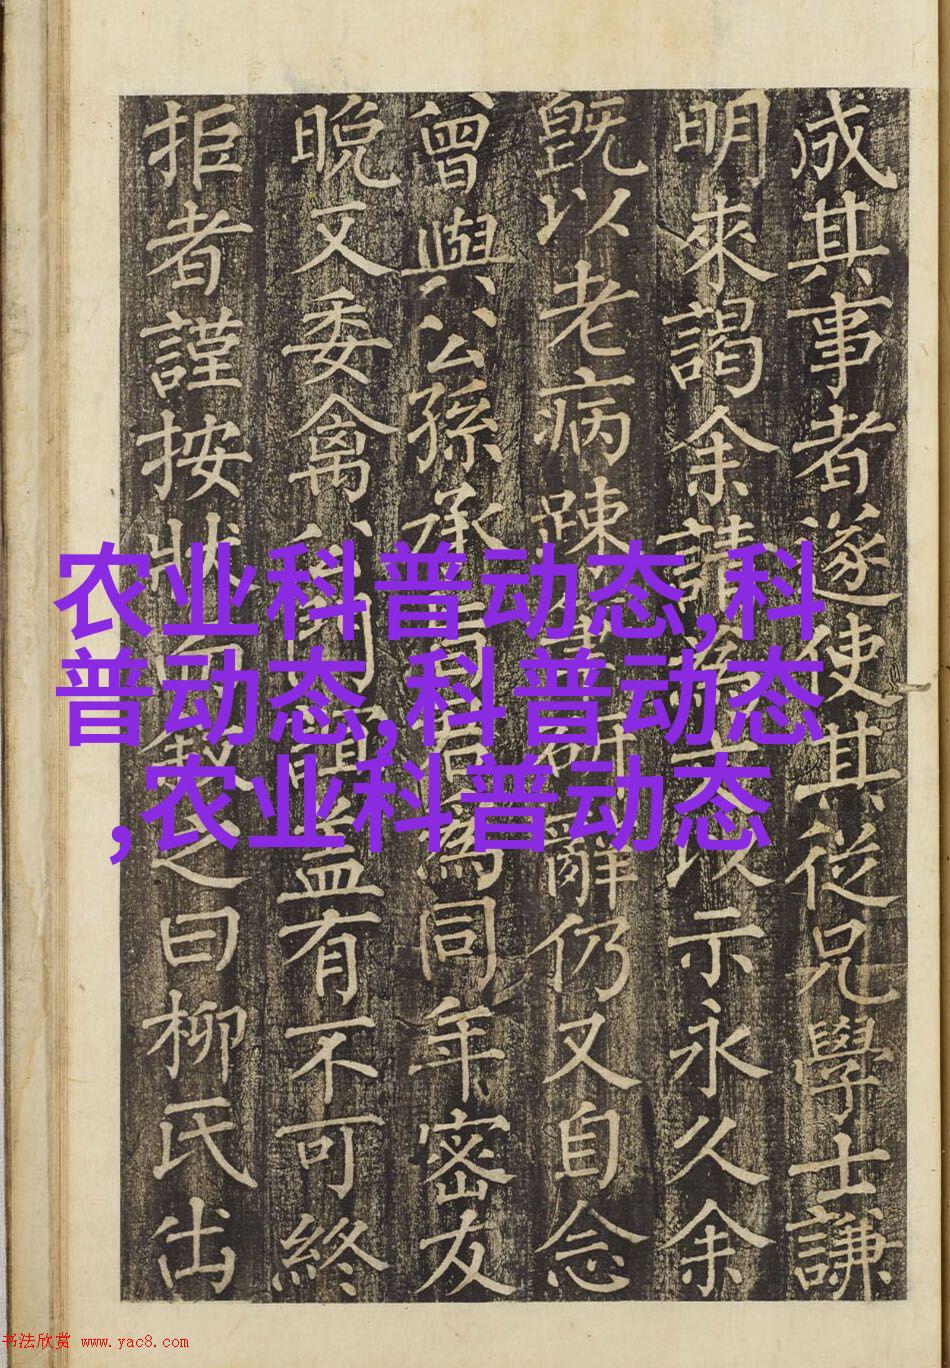 成其事者遂使其從兄學士謙
明來謁余請為文以示永久余
既以老病踈研辭仍又自念
曾與公孫承旨君為同年密友
晩又委禽有不可終
拒者謹按狀而敘之曰柳氏出
农业科普动态,科
普动态,科普动态
,农业科普动态
书法欣赏 www.yac8.com